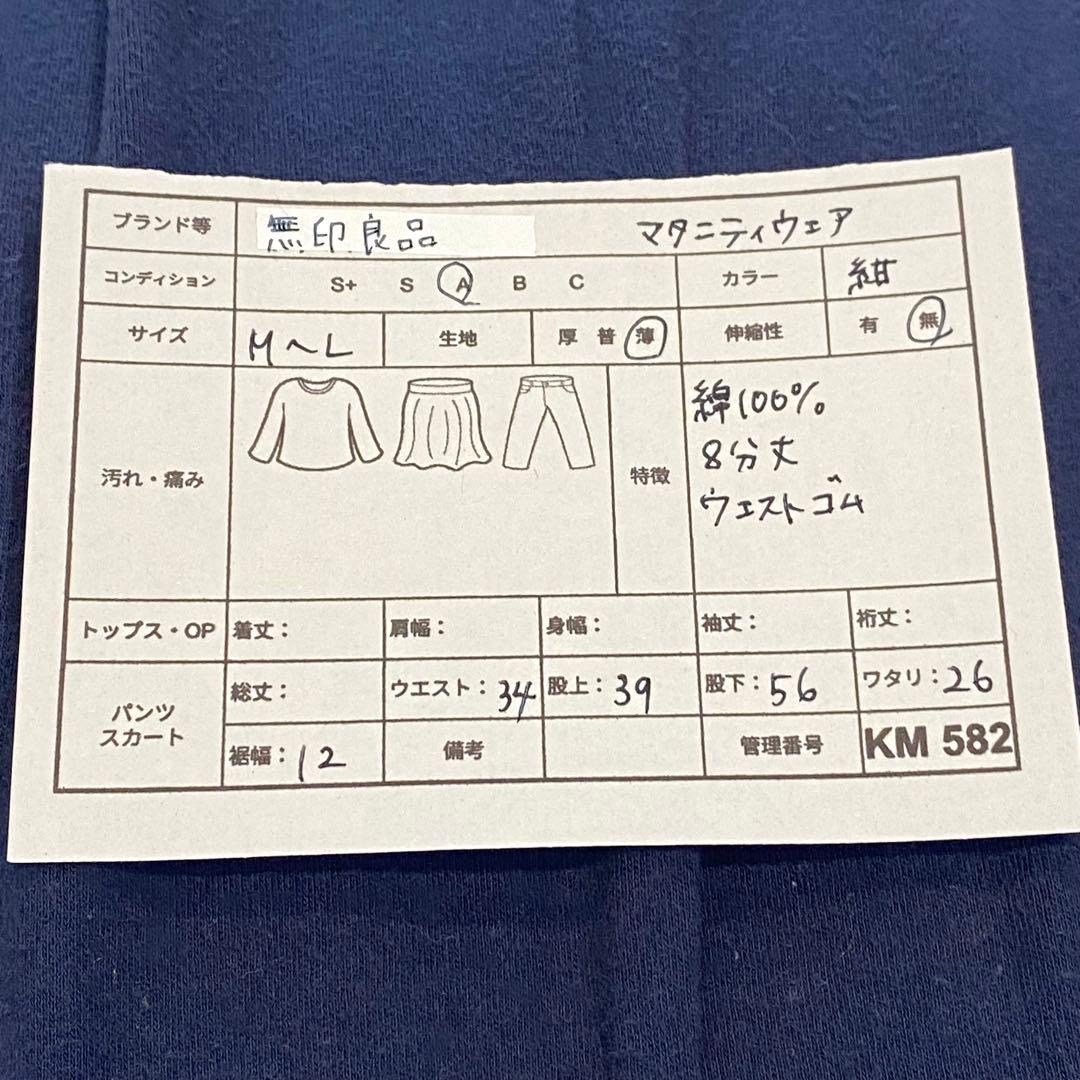 ブランド等 無印良品 マタニティウェア
コンディション S+ S A B C カラー 紺
サイズ M〜L 生地 厚 普 薄 伸縮性 有 無
汚れ・痛み 特徴
綿100%
8分丈
ウエストゴム
トップス・OP 着丈: 肩幅: 身幅: 袖丈: 裄丈:
パンツ
スカート
総丈: ウエスト:34 股上:39 股下:56 ワタリ:26
裾幅:12 備考 管理番号 KM 582